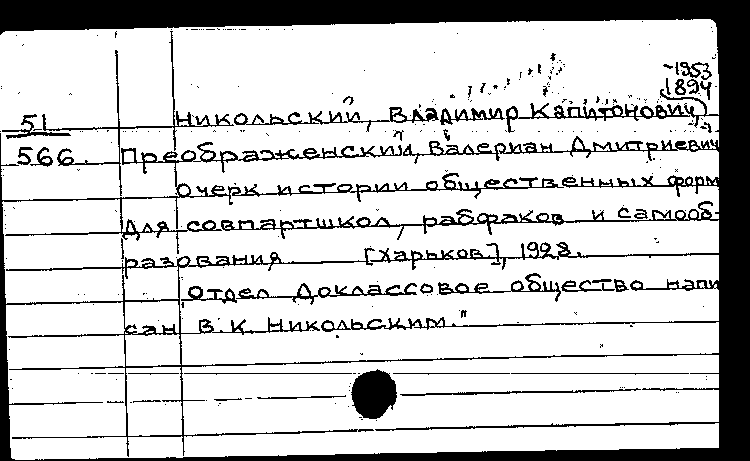 -1953
1894
51 Никольский, Владимир Капитонович,
566. Преображенский, Валериан Дмитриевич
Очерк истории общественных форм
для совпартшкол, рабфаков и самооб-
разования [Харьков], 1928.
"Отдел Доклассовое общество напи
сан В.К. Никольским."